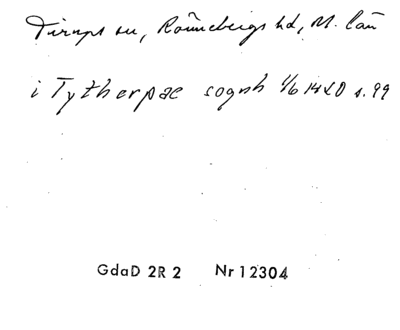 Tirups sn, Rönnebergs hd, M. län
i Tytherpae sognh 1/6 1420 s. 99
GdaD 2R 2 Nr 12304